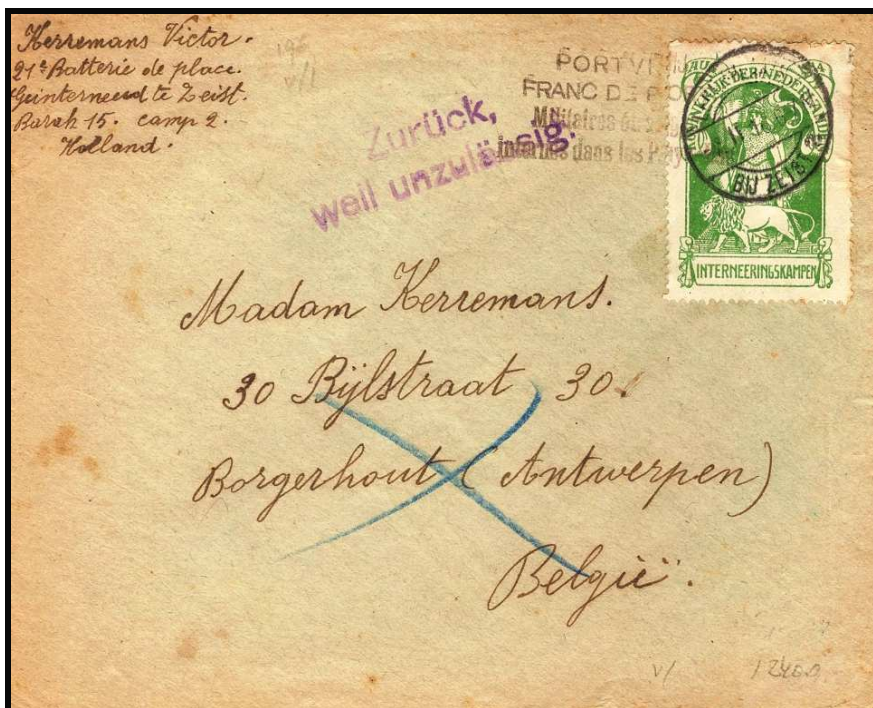 Kerremans Victor.
21e Batterie de place.
Geinterneerd te Zeist.
Barak 15. camp 2.
Holland.
PORTVRIJ
FRANC DE PORT
Militaires
internés dans les Pays
Zurück,
weil unzulässig.
KONINKRIJK DER NEDERLANDEN
BIJ ZEIST
INTERNEERINGSKAMPEN
Madam Kerremans.
30 Bijlstraat 30.
Borgerhout (Antwerpen)
België.